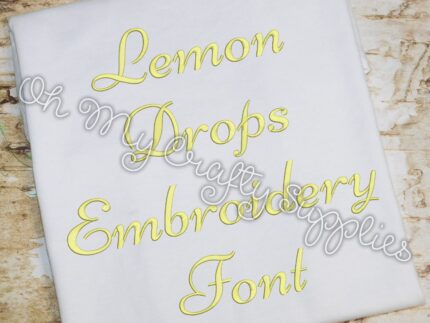 Lemon
Drops
Embroidery
Font
Oh My Crafty Supplies